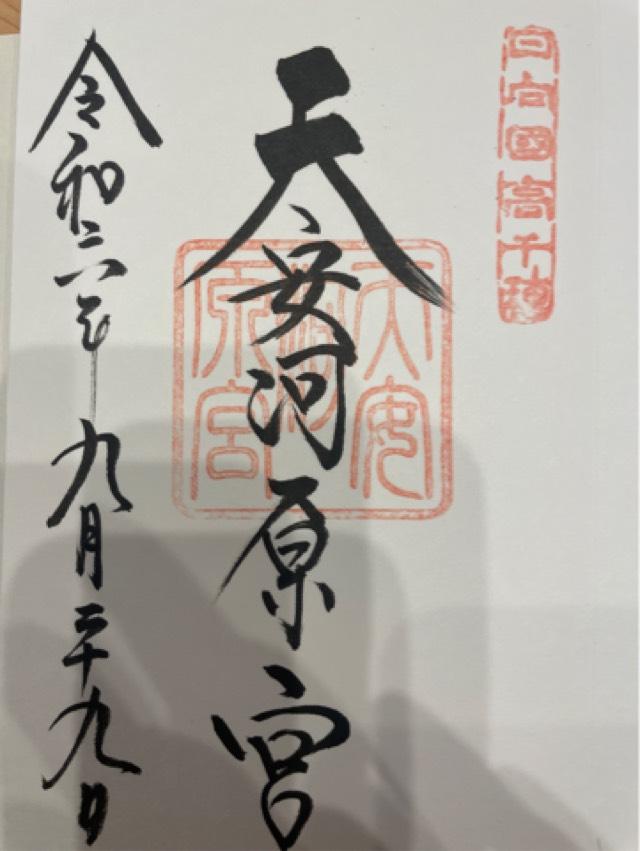 日向國高千穂
天安河原宮
天安河原宮
令和六年九月二十九日